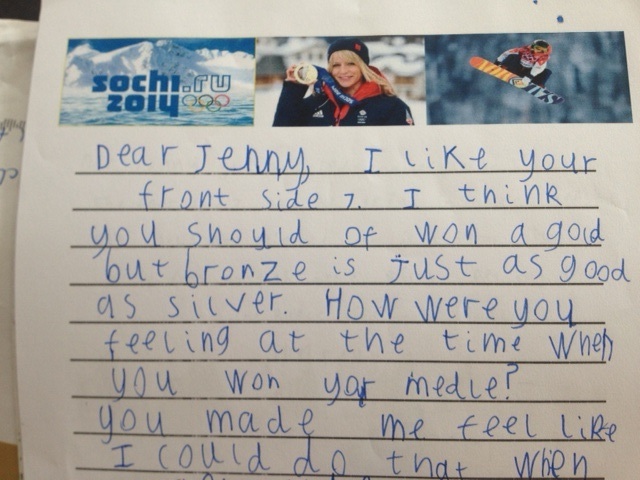 sochi.ru
2014
Dear Jenny, I like your
front side 7. I think
you should of won a gold
but bronze is just as good
as silver. How were you
feeling at the time when
you won yor medle?
you made me feel like
I could do that when